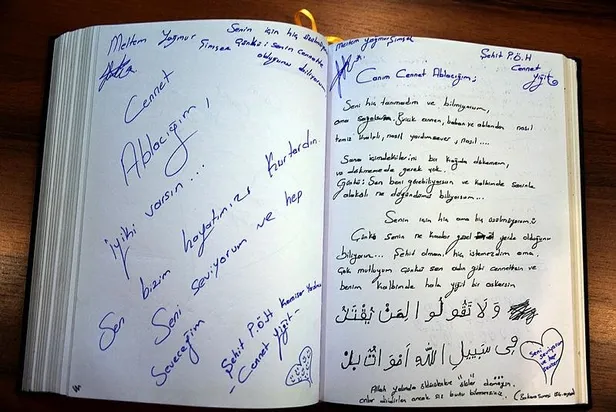 Meltem Yağmur
Şimşek
Senin için hiç üzülmüyorum
Çünkü senin cennette
olduğunu biliyorum
Cennet
Ablacığım,
İyiki varsın...
Sen bizim hayatımızı kurtardın.
Seni seviyorum ve hep
Seveceğim
Şehit PÖH Komiser Yrd.
- Cennet Yiğit -
Meltem Yağmur Şimşek
Şehit PÖH
Cennet
Yiğit
Canım Cennet Ablacığım;
Seni hiç tanımadım ve bilmiyorum,
ama annen, baban ve ablandan nasıl
nasıl yardımsever, nasıl ....
Sana içimdekilerini bu kağıda dökemem,
ve dökmeme de gerek yok.
Çünkü: Sen beni görebiliyorsun ve kalbimde seninle
alakalı ne düşündüğümü biliyorsun...
Senin için hiç ama hiç üzülmüyorum.
Çünkü Senin ne kadar güzel yerde olduğunu
biliyorum... Şehit olmanı hiç istemezdim ama,
Çok mutluyum çünkü sen adın gibi cennettesin ve
benim kalbimde hala yiğit bir askersin
وَلَا تَقُولُوا لِمَنْ يُقْتَلُ
فِي سَبِيلِ اللَّهِ أَمْوَاتٌ بَلْ
Seni
Seviyorum
ve hep
Allah yolunda öldürülenlere "ölüler" demeyin.
onlar diridirler ancak siz bunu bilemezsiniz. (Bakara Suresi